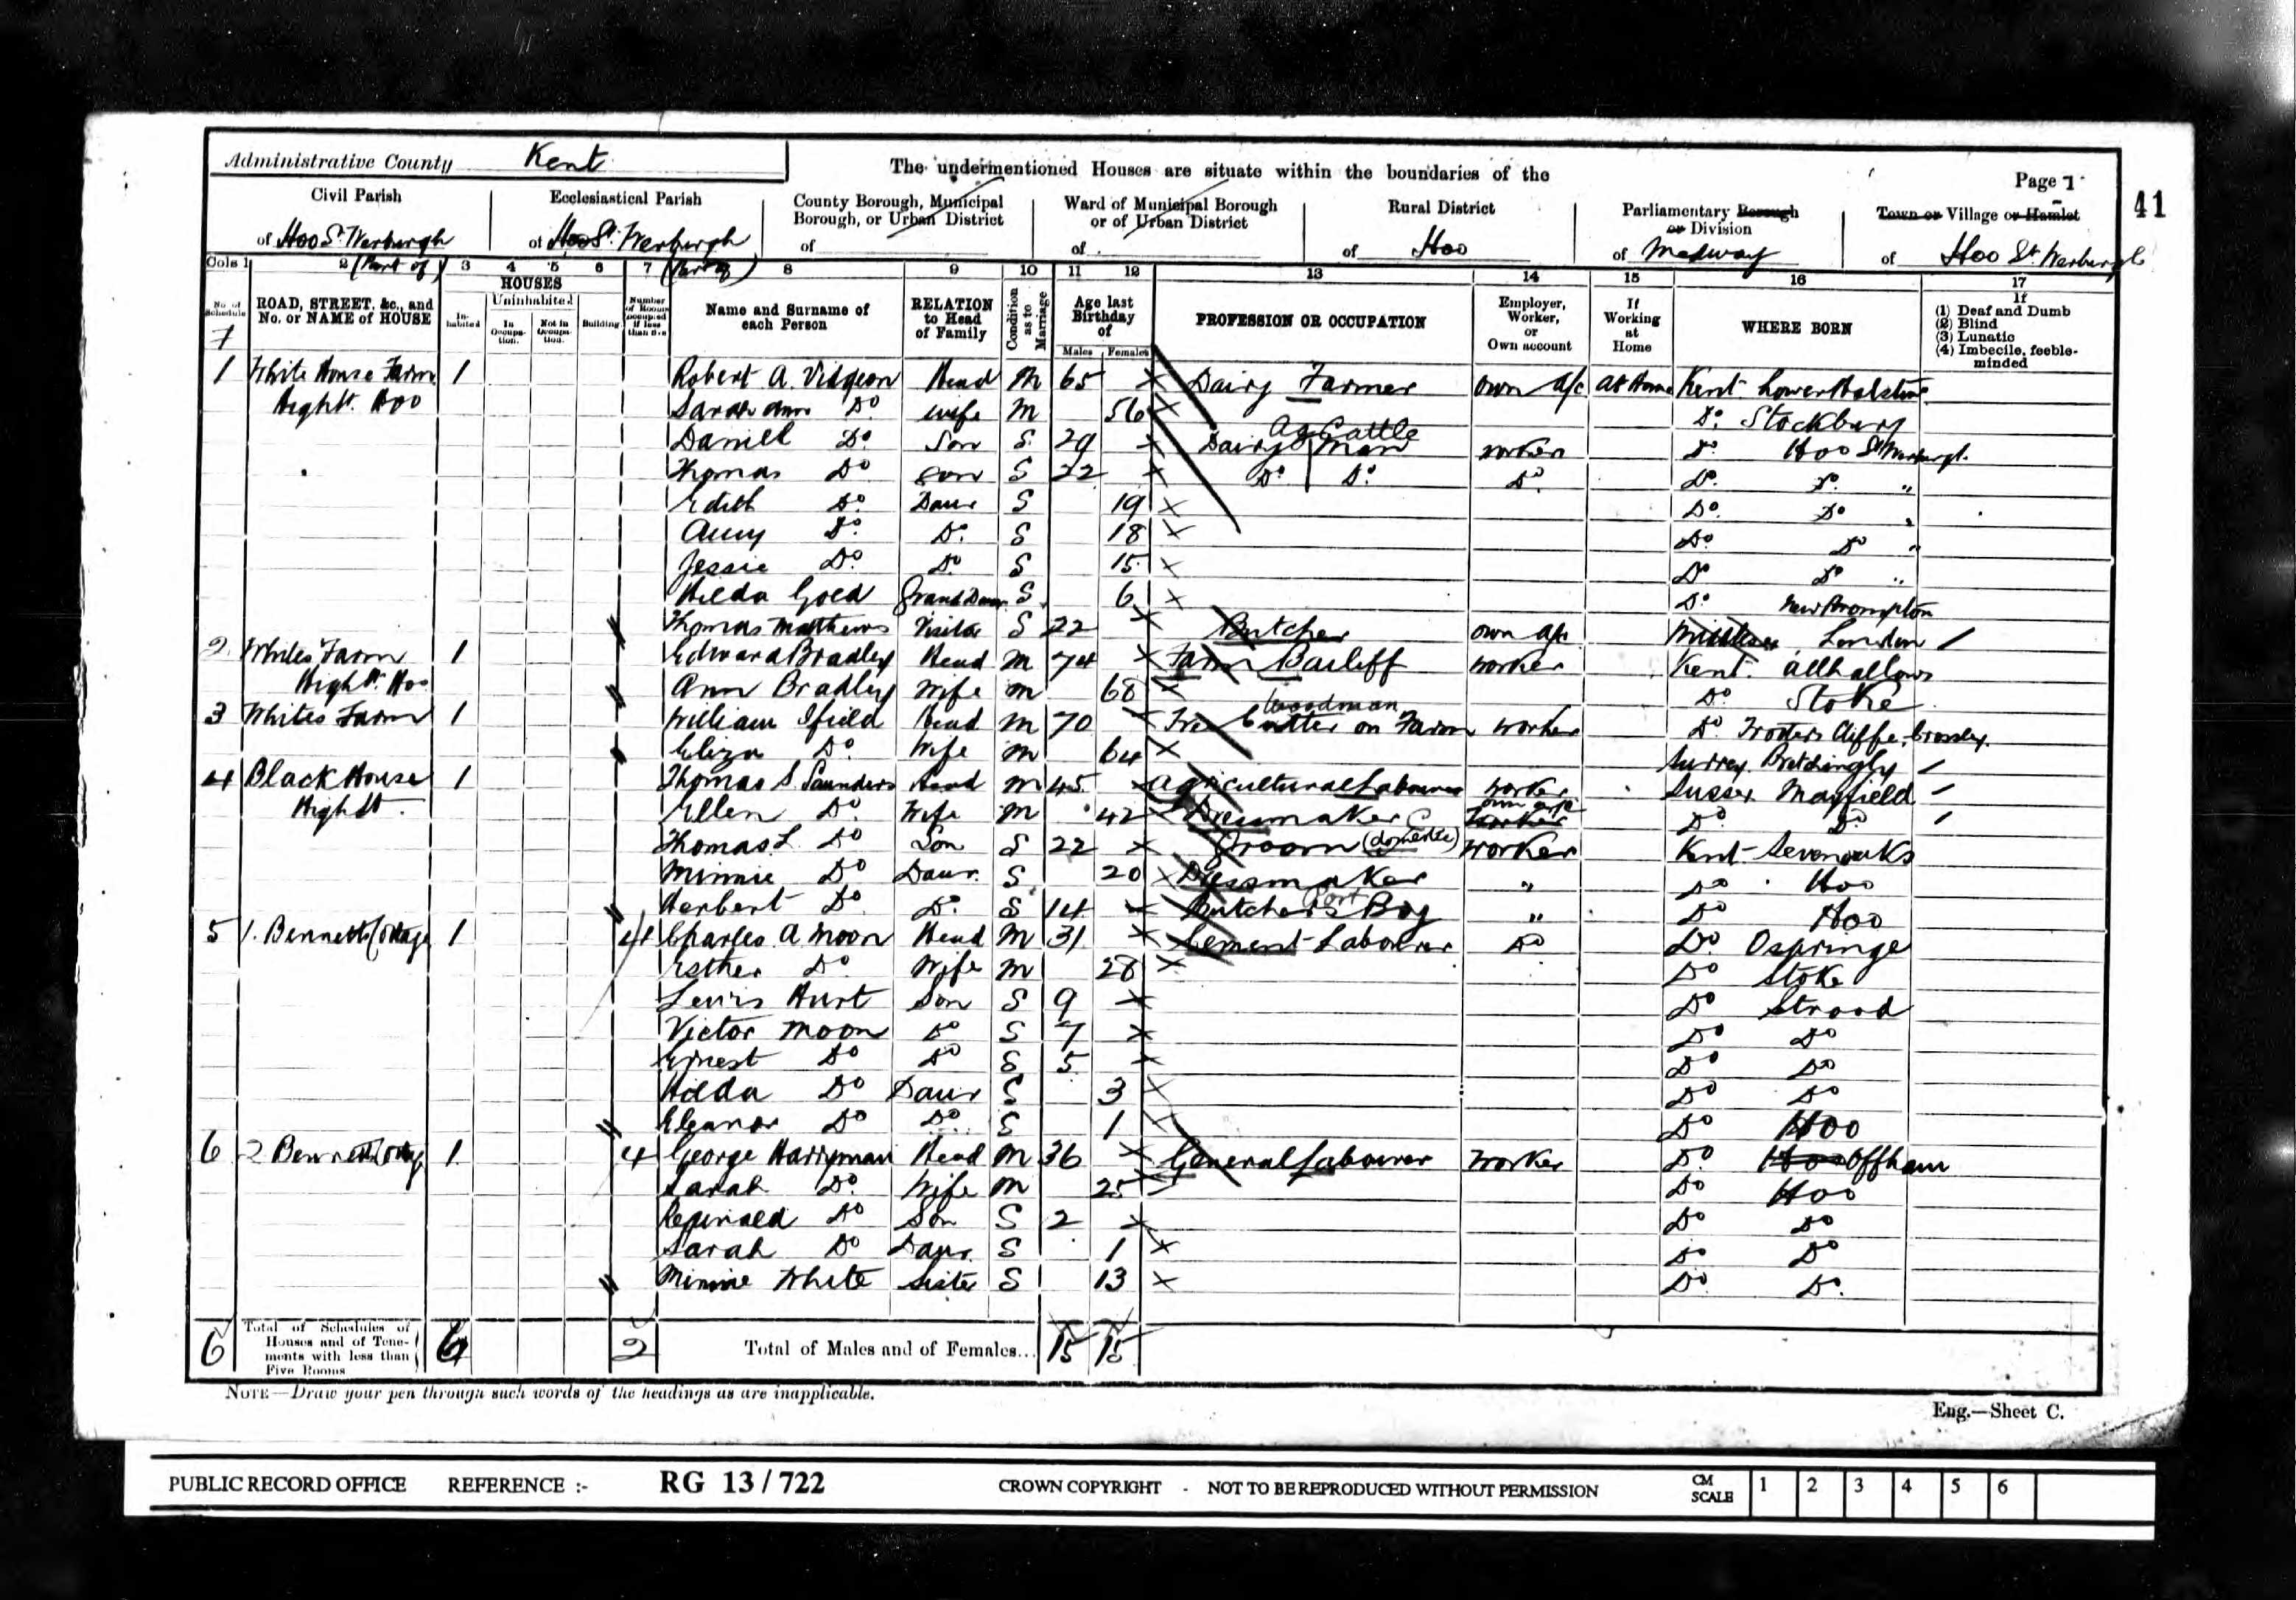 Administrative County Kent
The undermentioned Houses are situate within the boundaries of the
Page 1
41
Civil Parish
of Hoo St. Werburgh
(Part of)
Ecclesiastical Parish
of Hoo St. Werburgh
(Part of)
County Borough, Municipal Borough, or Urban District
of
Ward of Municipal Borough or of Urban District
of
Rural District
of Hoo
Parliamentary Borough or Division
of Medway
Town or Village or Hamlet
of Hoo St. Werburgh
Cols 1 2 3 4 5 6 7 8 9 10 11 12 13 14 15 16 17
No. of Schedule
ROAD, STREET, &c., and No. or NAME of HOUSE
HOUSES
Inhabited
Uninhabited
In Occupation.
Not in Occupation.
Building
Number of Rooms occupied if less than five
Name and Surname of each Person
RELATION to Head of Family
Condition as to Marriage
Age last Birthday of
Males Females
PROFESSION OR OCCUPATION
Employer, Worker, or Own account
If Working at Home
WHERE BORN
If
(1) Deaf and Dumb
(2) Blind
(3) Lunatic
(4) Imbecile, feeble-minded
1 White House Farm 1 Robert A. Vidgeon Head M 65 Dairy Farmer own a/c At Home Kent Lower Halstow
High St. Hoo Sarah Ann Do wife M 56 Do Stockbury
Daniel Do Son S 29 Dairy Man Ag Cattle worker Do Hoo St Werburgh
Thomas Do son S 22 Do Do Do Do Do "
Edith Do Daur S 19 Do Do "
Amy Do Do S 18 Do Do "
Jessie Do Do S 15 Do Do "
Hilda Goed Grand Daur S 6 Do New Brompton
Thomas Matthews Visitor S 22 Butcher own a/c Middlesex London
2 Whites Farm 1 Edward Bradley Head M 74 Farm Bailiff worker Kent Allhallows
High St. Hoo Ann Bradley Wife M 68 Do Stoke
3 Whites Farm 1 William Ifield Head M 70 Tree Cutter on Farm Woodman worker Do Trotters Cliffe,
Eliza Do Wife M 64 Surrey Bletchingly
4 Black House 1 Thomas S Saunders Head M 45 Agricultural Labourer worker Sussex Mayfield
High St. Ellen Do Wife M 42 Dressmaker worker own a/c Do Do
Thomas L. Do Son S 22 Groom (domestic) worker Kent Sevenoaks
Minnie Do Daur. S 20 Dressmaker " Do Hoo
Herbert Do Do S 14 Butchers Boy " Do Hoo
5 1. Bennetts Cottage 1 4 Charles A Moon Head M 31 Cement Labourer Do Do Ospringe
Esther Do Wife M 28 Do Stoke
Lewis Hunt Son S 9 Do Strood
Victor Moon Do S 7 Do Do
Ernest Do Do S 5 Do Do
Hilda Do Daur S 3 Do Do
Eleanor Do Do S 1 Do Hoo
6 2 Bennetts Cottage 1 4 George Harryman Head M 36 General Labourer worker Do Hoo Offham
Sarah Do Wife M 25 Do Hoo
Reginald Do Son S 2 Do Do
Sarah Do Daur. S 1 Do Do
Minnie White Sister S 13 Do Do
6 Total of Schedules of Houses and of Tenements with less than Five Rooms 6 2 Total of Males and of Females... 15 15
NOTE—Draw your pen through such words of the headings as are inapplicable.
Eng.—Sheet C.
PUBLIC RECORD OFFICE REFERENCE :- RG 13/722 CROWN COPYRIGHT - NOT TO BE REPRODUCED WITHOUT PERMISSION CM SCALE 1 2 3 4 5 6